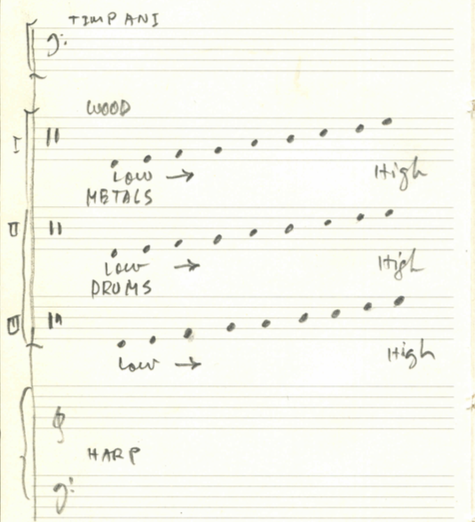 TIMPANI
WOOD
I
LOW → High
METALS
II
LOW → High
DRUMS
III
LOW → High
HARP